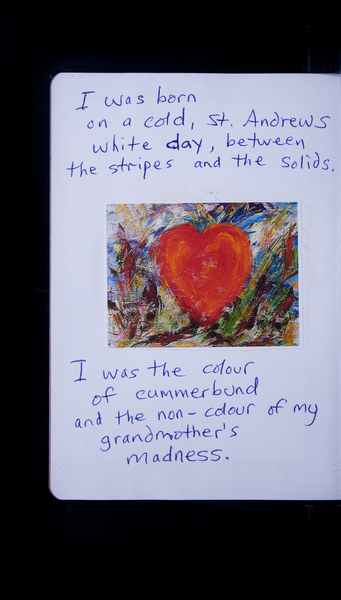 I was born
on a cold, St. Andrews
white day, between
the stripes and the solids.
I was the colour
of cummerbund
and the non-colour of my
grandmother's
madness.